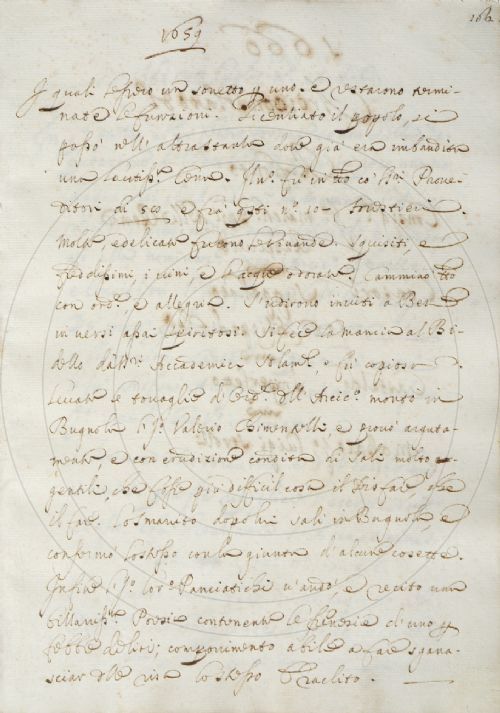 1659
162
i quali lessero un sonetto p uno. e restarono termi-
nate le funzioni. Licenziato il popolo, si
passò nell'altra stanza dove già era imbandita
una lautiss.a Cena. In n.o fù in tto co' SS.ri Prove-
ditori di 500 e frà q.sti n.o 10 forestieri.
Molte, e delicate furono le vivande. Squisiti e
freddissimi i vini, e l'acque odorate. Camminò tto
con ord.e e allegria. S'udirono inviti a Bere
in versi assai spiritosi. Si fece la mancia al Bi-
dello dalli Accademici solam.te e fù copiosa
Levate le tovaglie d'ord.e dell'Arcic.o montò in
Bugnola il S.r Valerio Chimentelli, e provò arguta-
mente, e con erudizione condita di sali molto
gentili, che fosse più difficil cosa il disfare, che
il fare. Lo Smarrito dopo lui salì in Bugnola e
confermò lo stesso con la giunta d'alcune cosette.
Infine il S.r Lor.o Panciatichi v'andò, e recitò una
bizzariss.a Poesia contenente le frenesie d'uno p
febbe deliri; componimento abile a fare sgana-
sciar dalle risa lo stesso Eraclito.